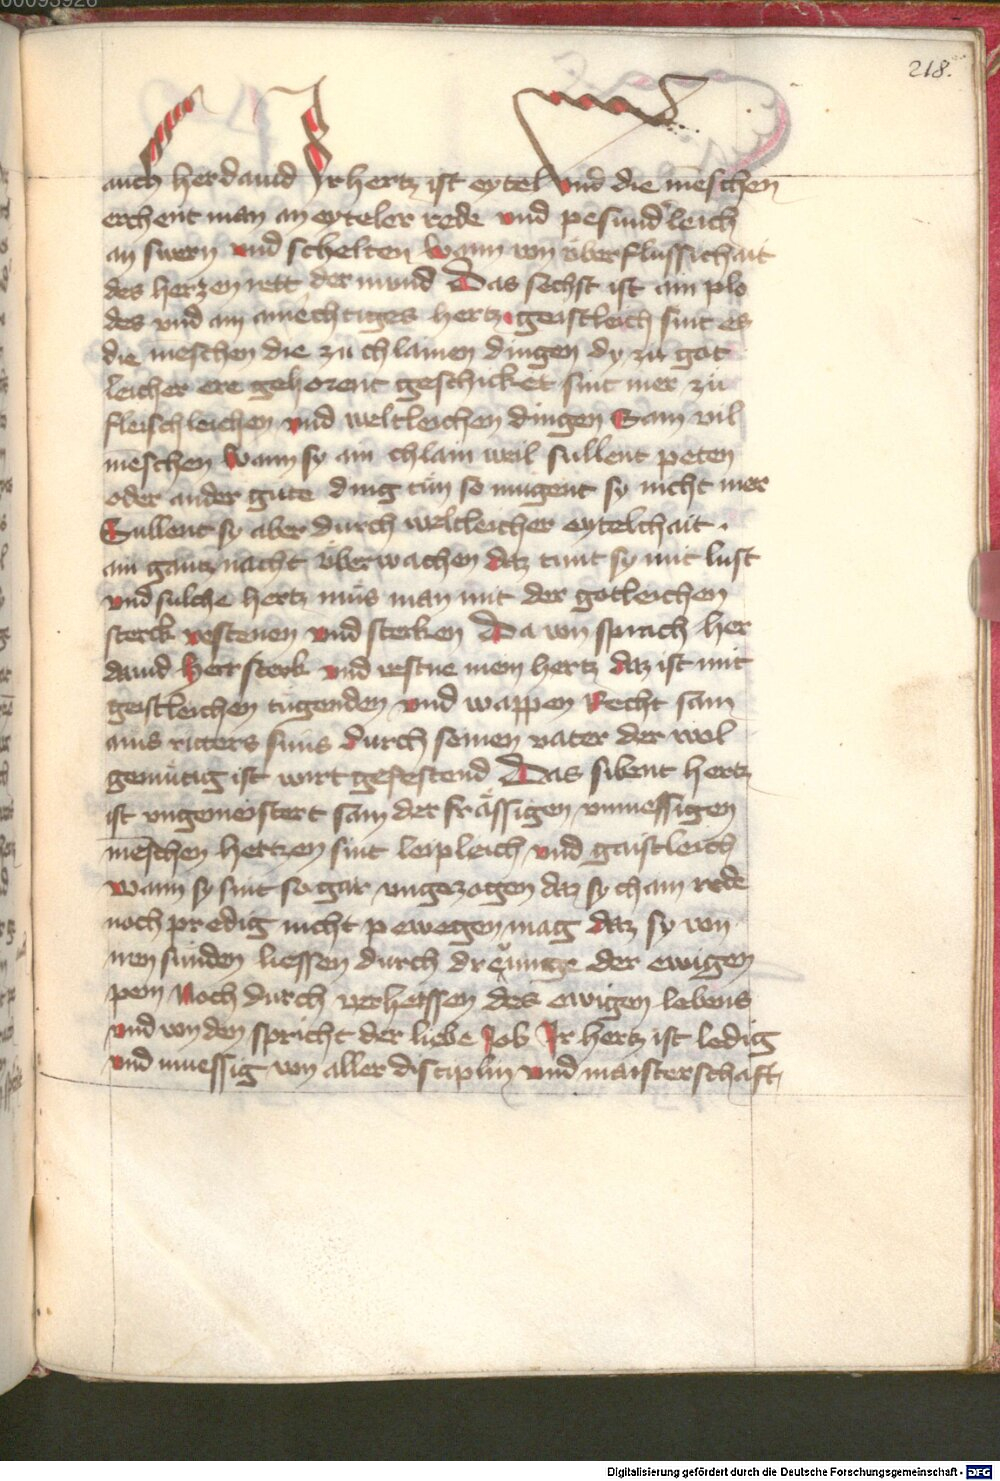 00093926
218.
auch her dauid Ir hertz ist eytel vnd die menschen
erchent man an eyteler rede vnd pesunderleich
an swern vnd schelten wann von überflussichait
des herzen rett der mund Das sechst ist ain plo
des vnd ain amechtiges hertz geistleich sint es
die menschen die zu chlainen dingen dy zu got
leicher ere gehorent geschicket sint mer zu
fleischleichen vnd weltleichen dingen Sam vil
menschen wann sy ain chlain weil sullent peten
oder ander gute ding tün so mugent sy nicht mer
Sullent sy aber durch weltleicher eytelchait
ain gantz nacht überwachen daz tunt sy mit lust
vnd sulche hertz müs man mit der gotleichen
sterck vestenen vnd sterken Da von sprach her
dauid herr sterk vnd vestne mein hertz daz ist mit
geistleichen tugenden vnd wappen Recht sam
ains ritters süns durch seinen vater der wol
gemütig ist wirt gefestend Das sibent hertz
ist vngemeistert sam der frässigen vnmessigen
menschen hertzen sint leipleich vnd gaistleich
wann sy sint so gar vngezogen daz sy chain rede
noch predig nicht pewegen mag daz sy von
iren sünden liessen durch dreünge der ewigen
pein Noch durch verhaissen des ewigen lebens
vnd von den spricht der liebe Job Ir hertz ist ledig
vnd muessig von aller disciplin vnd maisterschaft
Digitalisierung gefördert durch die Deutsche Forschungsgemeinschaft - DFG